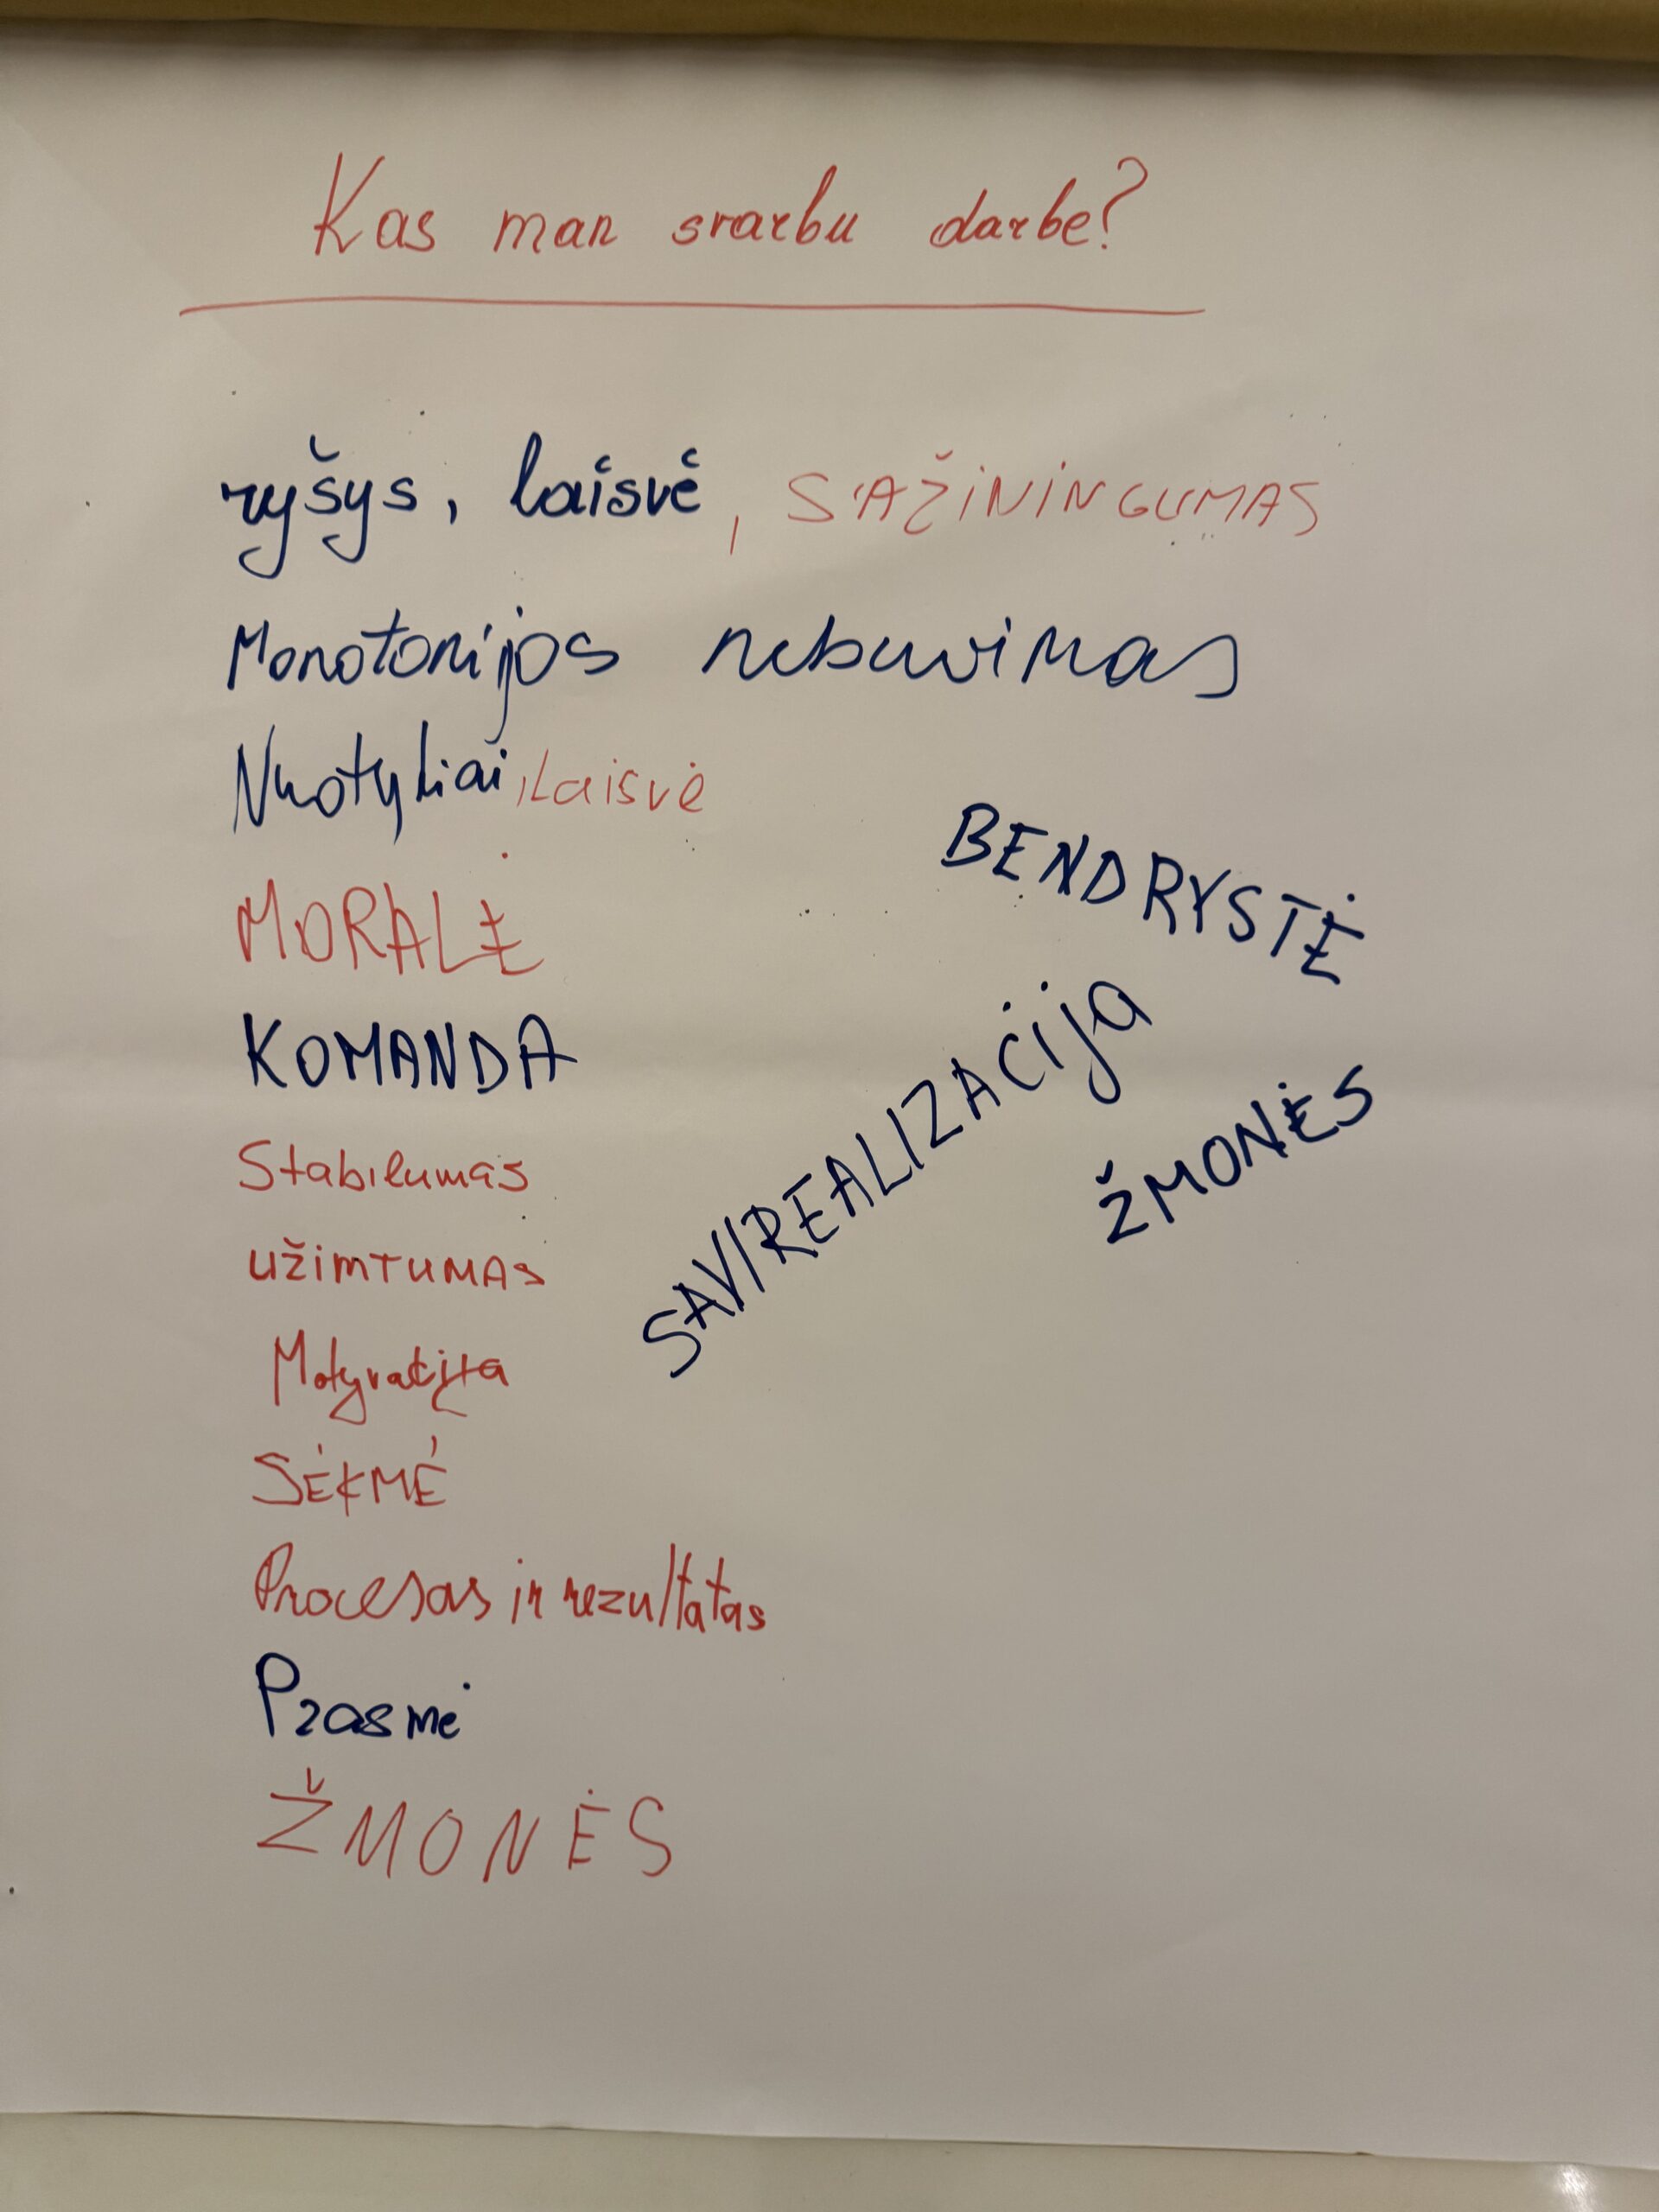 Kas man svarbu darbe?
ryšys, laisvė, SAŽININGUMAS
Monotonijos nebuvimas
Nuotykiai, Laisvė
MORALĖ
KOMANDA
Stabilumas
UŽIMTUMAS
Motyvacija
SĖKMĖ
Procesas ir rezultatas
Prasmė
ŽMONĖS
BENDRYSTĖ
SAVIREALIZACija
ŽMONĖS